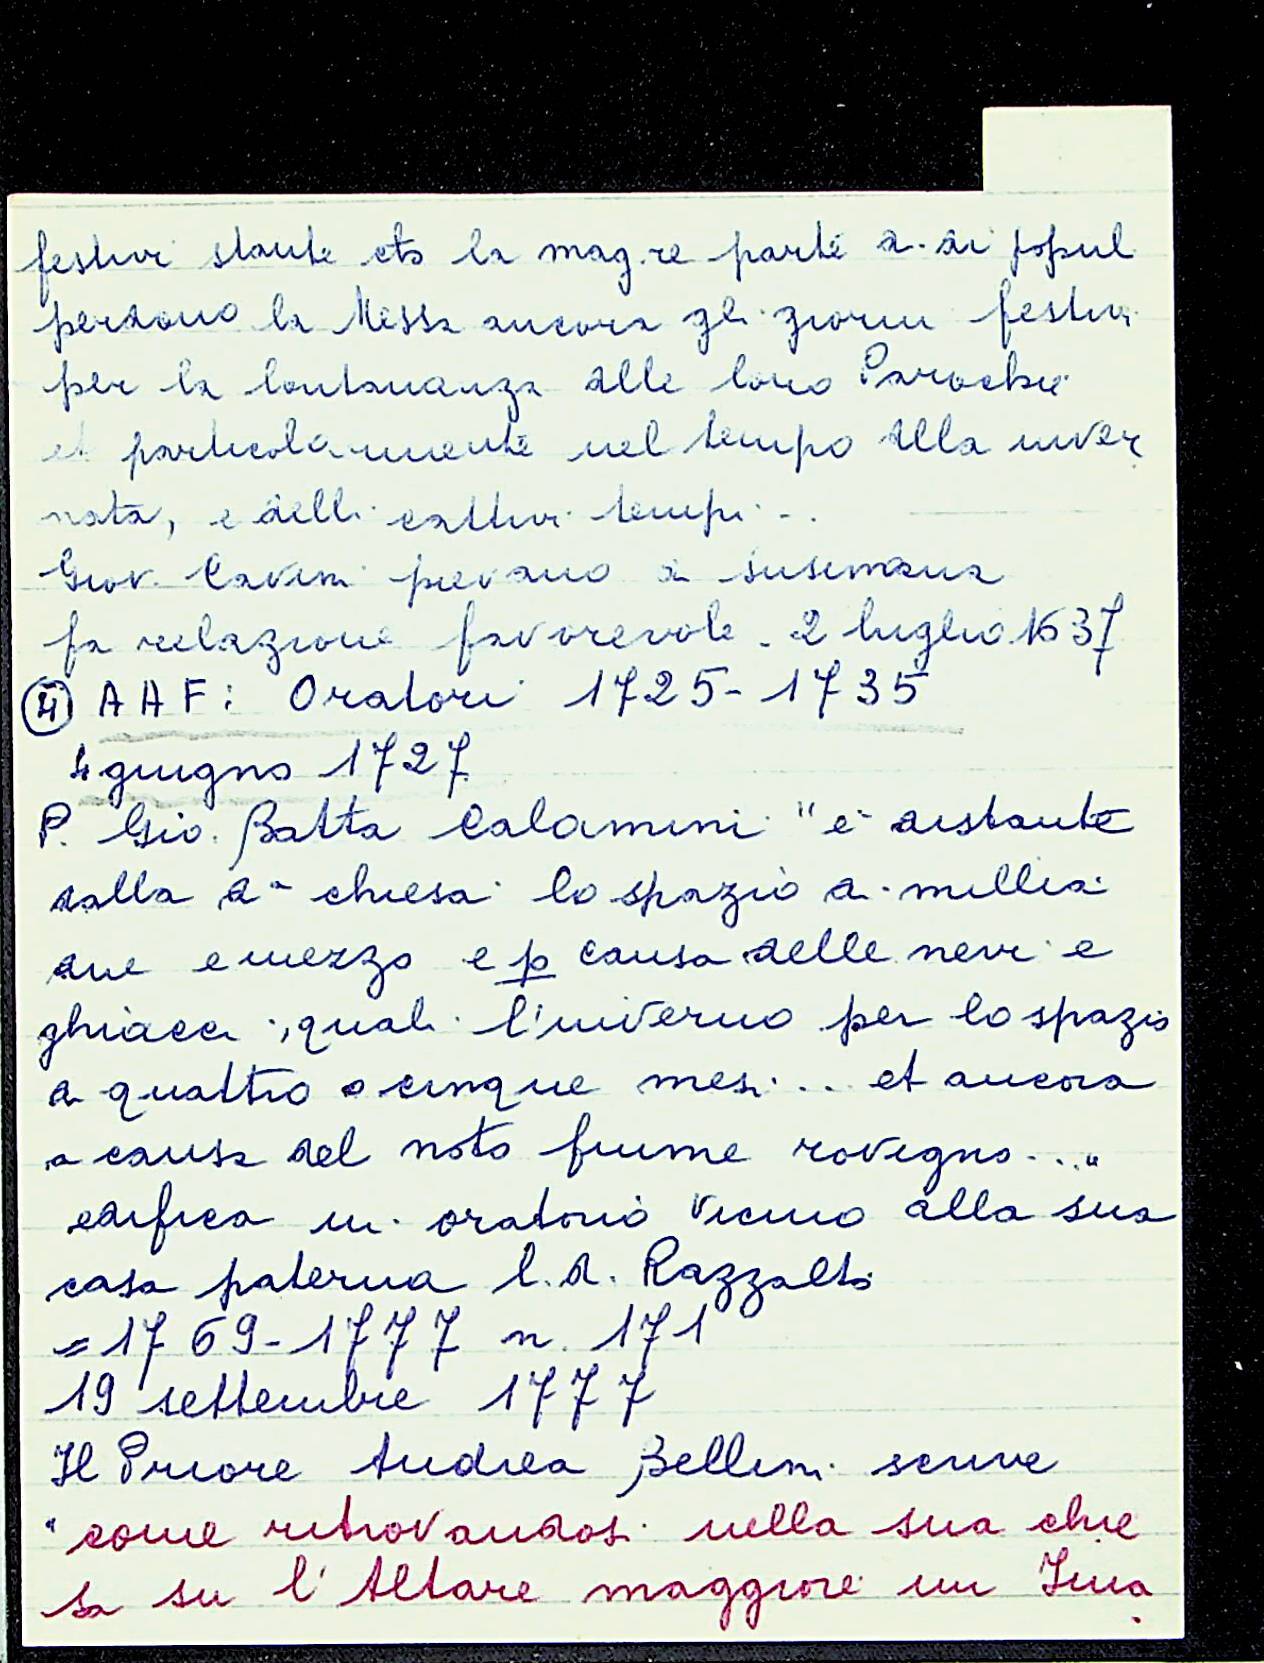 festivi stante cto la mag.re parte d. di popul
perdono la Messa ancora gli giorni festivi
per la lontananza alle loro Parochie
et particolarmente nel tempo della inver
nata, e delli cattivi tempi - .
Giov. Cavini pievano di Susinana
fa relazione favorevole. 2 luglio 1637
④ AAF: Oratori 1725-1735
4 giugno 1727
P. Gio. Batta Calamini "è distante
dalla da chiesa lo spazio di millia
due e mezzo e p causa delle nevi e
ghiacci, quali l'inverno per lo spazio
di quattro o cinque mesi... et ancora
a causa del noto fiume rovigno..."
edifica un oratorio vicino alla sua
casa paterna l.d. Razzalto
= 1769-1777 n. 171
19 settembre 1777
Il Priore Andrea Bellini scrive
"come ritrovandosi nella sua chie
sa su l'Altare maggiore un Ima